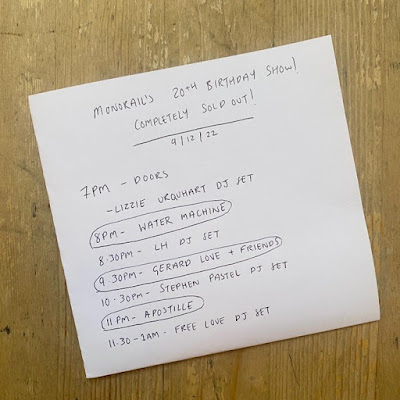 MONORAIL'S 20TH BIRTHDAY SHOW!
COMPLETELY SOLD OUT!
9/12/22
7PM - DOORS
- LIZZIE URQUHART DJ SET
8PM - WATER MACHINE
8.30PM - LH DJ SET
9.30PM - GERARD LOVE + FRIENDS
10.30PM - STEPHEN PASTEL DJ SET
11PM - APOSTILLE
11.30 - 1AM - FREE LOVE DJ SET